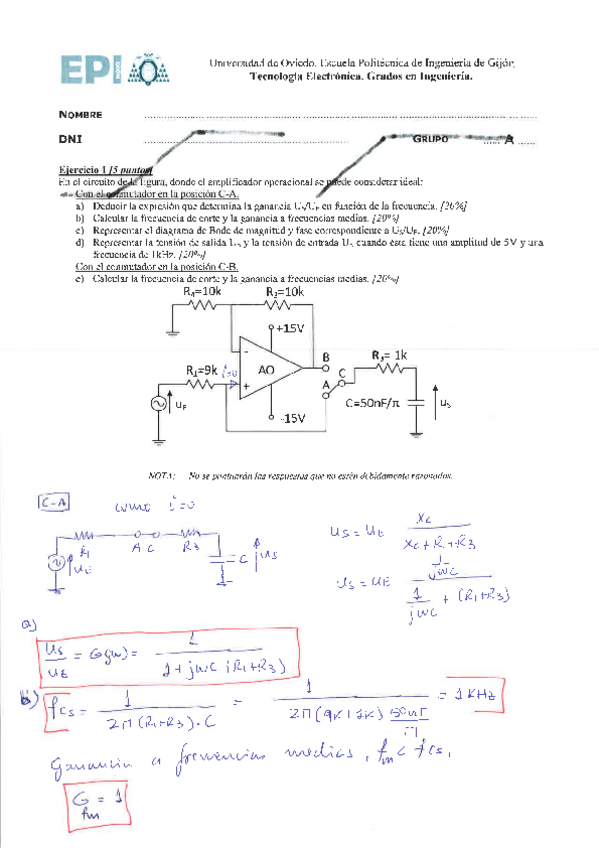 EPI
Universidad de Oviedo. Escuela Politécnica de Ingeniería de Gijón.
Tecnología Electrónica. Grados en Ingeniería.
NOMBRE
DNI
GRUPO A
Ejercicio 1 [5 puntos]
En el circuito de la figura, donde el amplificador operacional se puede considerar ideal:
Con el conmutador en la posición C-A.
a) Deducir la expresión que determina la ganancia US/UE en función de la frecuencia. [20%]
b) Calcular la frecuencia de corte y la ganancia a frecuencias medias. [20%]
c) Representar el diagrama de Bode de magnitud y fase correspondiente a US/UE. [20%]
d) Representar la tensión de salida US, y la tensión de entrada UE cuando ésta tiene una amplitud de 5V y una
frecuencia de 1kHz. [20%]
Con el conmutador en la posición C-B.
e) Calcular la frecuencia de corte y la ganancia a frecuencias medias. [20%]
R4=10k R2=10k
+15V
- AO B R3= 1k
R1=9k i=0 + A C
uE -15V C=50nF/π uS
NOTA: No se puntuarán las respuestas que no estén debidamente razonadas.
C-A como i=0
R1 A C R3 C uS
uE
uS = uE Xc / (Xc + R1 + R3)
uS = uE (1/jωC) / (1/jωC + (R1+R3))
a)
uS/uE = G(jω) = 1 / (1 + jωC (R1+R3))
b) fcs = 1 / (2π (R1+R3)·C) = 1 / (2π (9k+1k) 50nF/π) = 1 kHz
Ganancia a frecuencias medias, fm < fcs,
G fm = 1